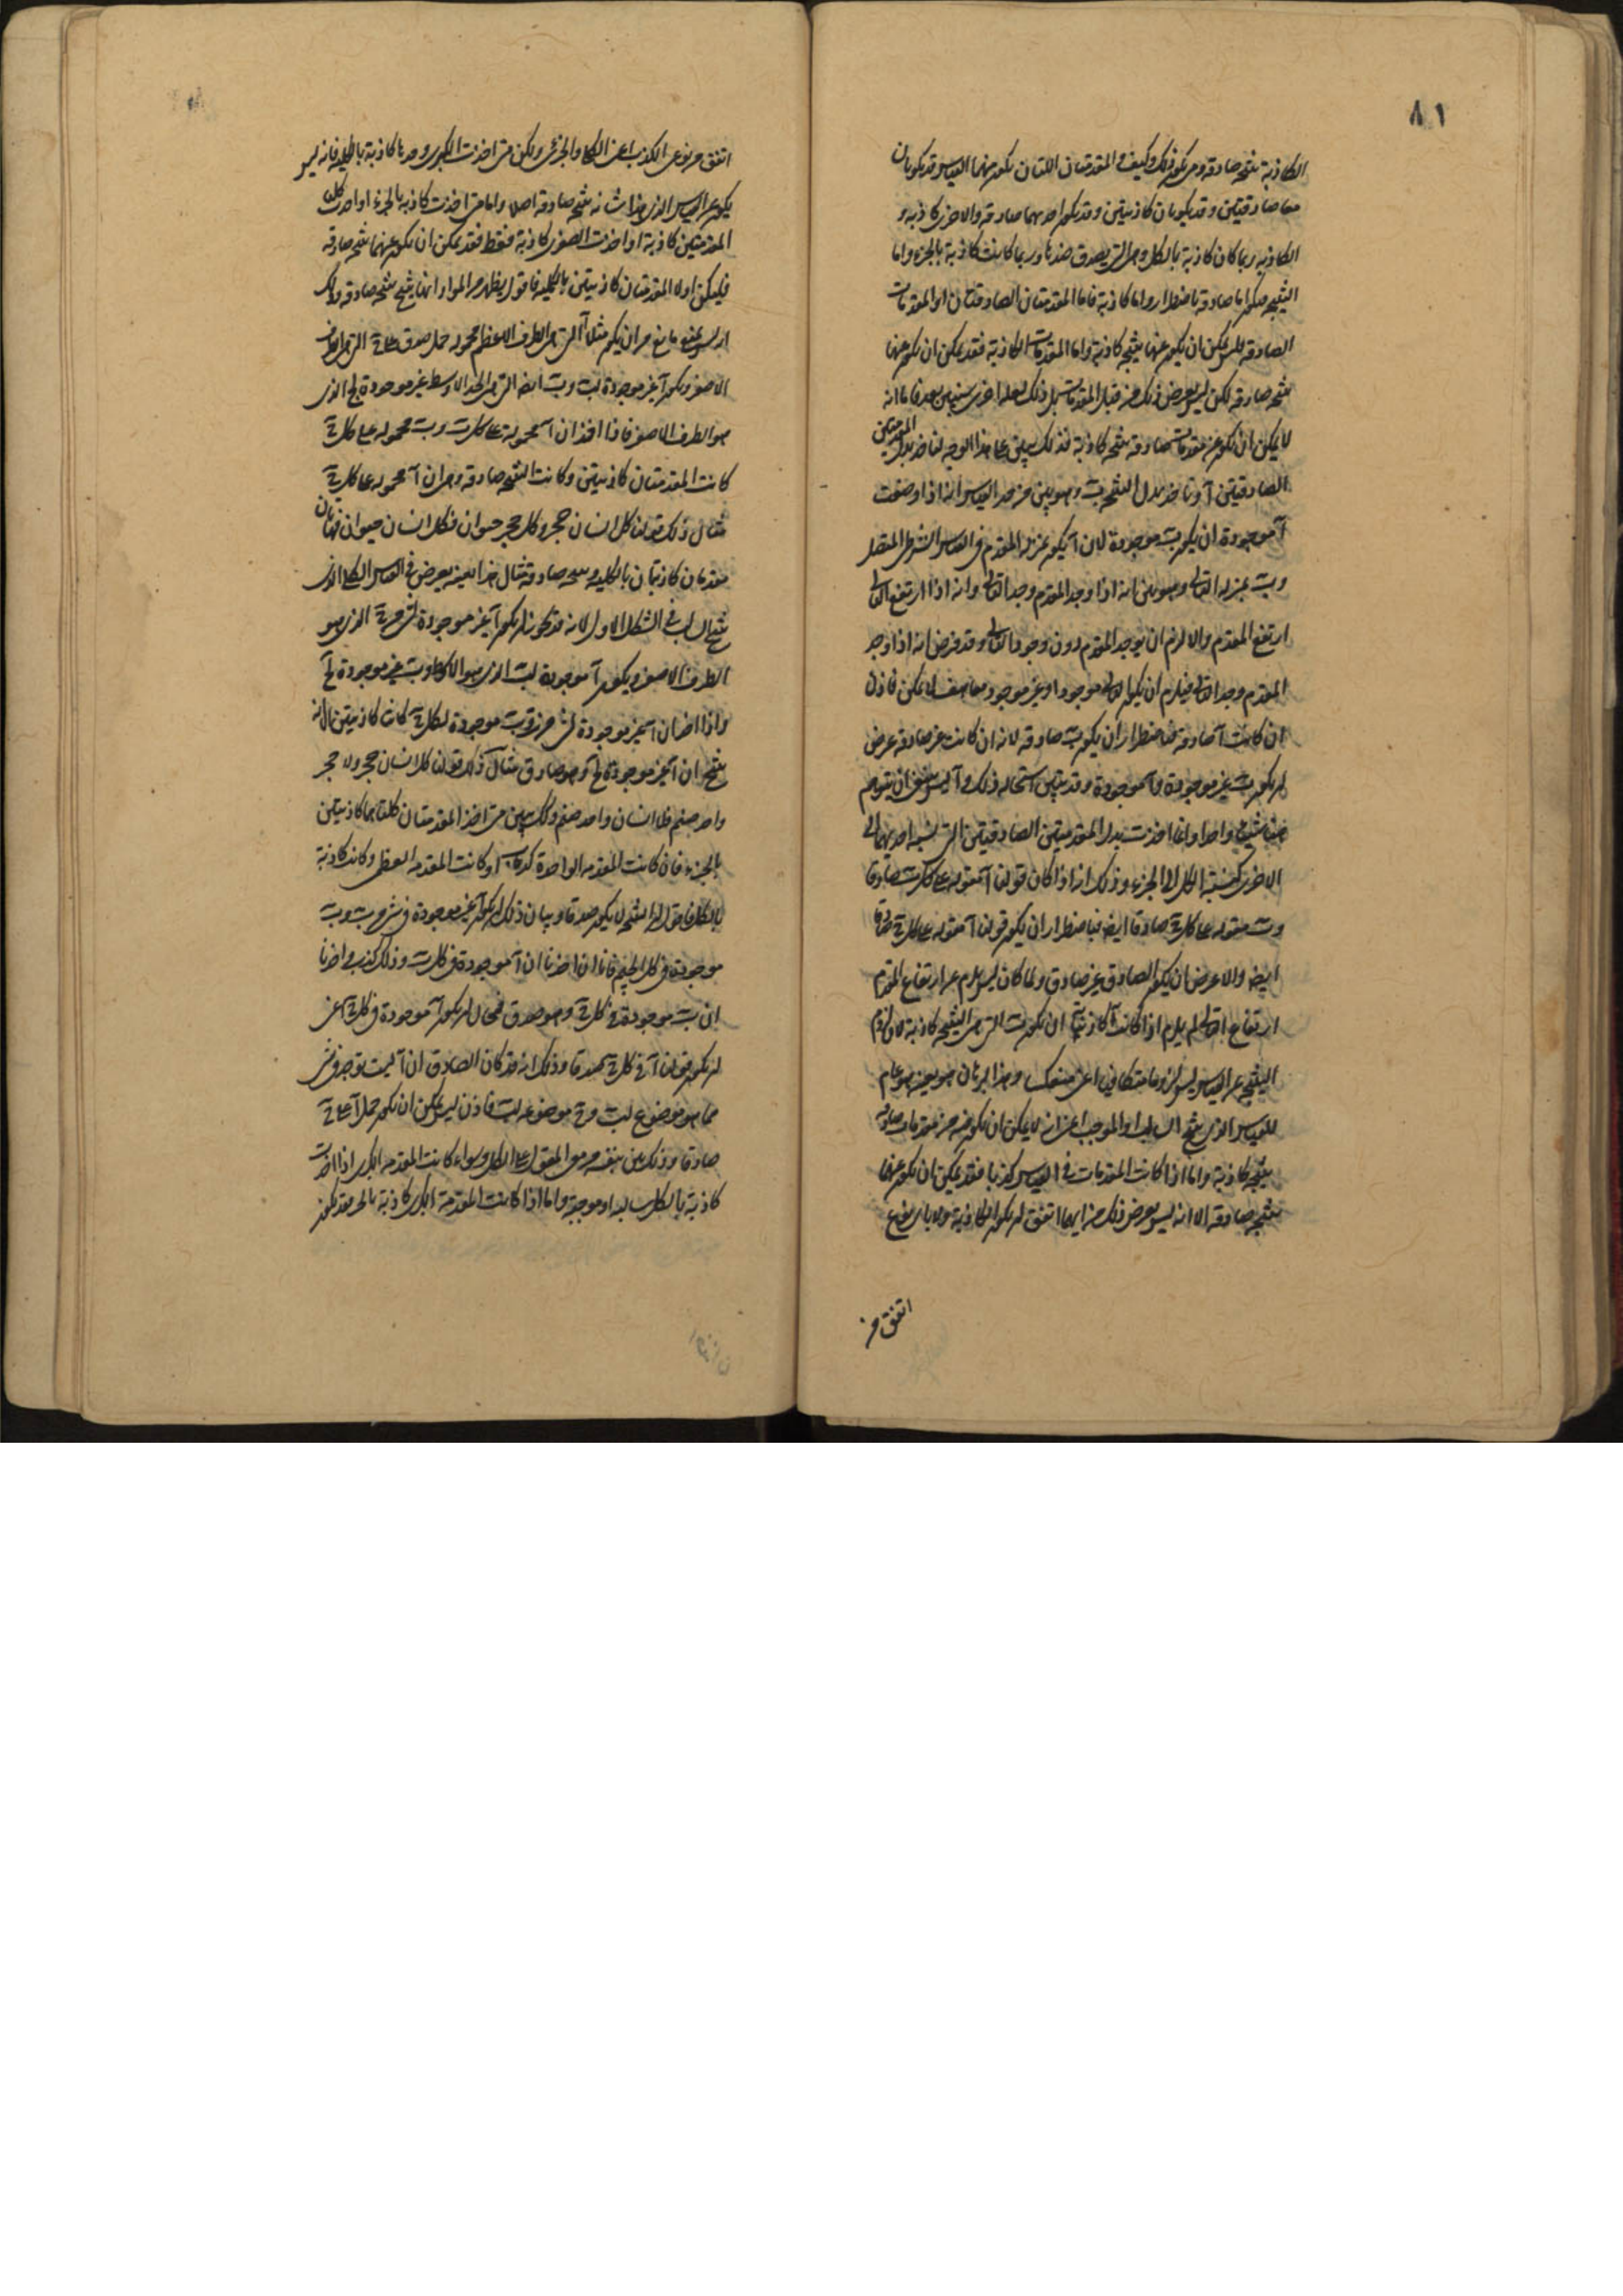 ٨١
الكاذبة نتيجة صادقة ومتى يكون ذلك وكيف والمقدمتان اللتان يكون منهما القياس قد يكونان
معا صادقتين وقد يكونان كاذبتين وقد يكون احديهما صادقة والاخرى كاذبة و
الكاذبة ربما كان كاذبة بالكل وهى التى يصدق ضدها وربما كانت كاذبة بالجزء واما
النتيجة فيكون اما صادقة باضطرار واما كاذبة فاما المقدمتان الصادقتان او المقدمات
الصادقة فليس يمكن ان يكون عنها نتيجة كاذبة واما المقدمات الكاذبة فقد يمكن ان يكون عنها
نتيجة صادقة لكن ليس يعرض ذلك من قبل المقدمات بل ذلك لعلة اخرى سنبين بعد فاما انه
لا يمكن ان يكون عن مقدمات صادقة نتيجة كاذبة فذلك يتبين على هذا الوجه لناخذ بدل المقدمتين
الصادقتين آ وناخذ بدل النتيجة ب وهو بين من حد القياس انه اذا وضعت
آ موجودة ان يكون ب موجودة لان آ يكون بمنزلة المقدم فى القياس الشرطى المتصل
وب بمنزلة التالى وهو بين انه اذا وجد المقدم وجد التالى وانه اذا ارتفع التالى
ارتفع المقدم والا لزم ان يوجد المقدم دون وجود التالى وقد فرض انه اذا وجد
المقدم وجد التالى فيلزم ان يكون التالى موجودا وغير موجود معا هف لا يمكن فاذن
ان كانت آ صادقة فباضطرار ان يكون ب صادقة لانه ان كانت غير صادقة عرض
ان يكون ب غير موجودة وآ موجودة وقد تبين استحالة ذلك وآ ليس ينبغى ان يتوهم
هنا شيئا واحدا وانما اخذت بدل المقدمتين الصادقتين التى نسبة احديهما الى
الاخرى كنسبة الكل الى الجزء وذلك انه اذا كان قولنا آ مقولة على كل ب صادقا
وب مقولة على كل ج صادقا ايضا فباضطرار ان يكون قولنا آ مقولة على كل ج صادقا
ايضا والا عرض ان يكون الصادق غير صادق ولما كان ليس يلزم عن ارتفاع المقدم
ارتفاع التالى لم يلزم اذا كانت آ كاذبة ان يكون ب التى هى النتيجة كاذبة لان لزوم
النتيجة عن القياس ليس لزوما متكافيا اعنى منعكسا وهذا البرهان هو بعينه هو عام
للقياس الذى ينتج السالب او الموجب اعنى انه لا يمكن ان يكون فيه من مقدمات صادقة
نتيجة كاذبة واما اذا كانت المقدمات فى القياس كذبا فقد يمكن ان يكون عنها
نتيجة صادقة الا انه ليس يعرض ذلك من ايهما اتفق ان يكون الكاذبة ولا باى نوع
اتفق من
اتفق من نوعى الكذب اعنى الكلى والجزئى ولكن متى اخذت الكبرى وحدها كاذبة بالكلية فانه ليس
يكون عن القياس الذى هذا شانه نتيجة صادقة اصلا واما متى اخذت كاذبة بالجزء او اخذت كلتى
المقدمتين كاذبة او اخذت الصغرى كاذبة فقط فقد يمكن ان يكون عنهما نتيجة صادقة
فليكن اولا المقدمتان كاذبتين بالكلية فاقول يظهر من المواد انها ينتج نتيجة صادقة وذلك
انه ليس يمنع مانع من ان يكون مثلا آ التى هى الطرف الاعظم محمولة حمل صدق على ج التى هى الطرف
الاصغر ويكون آ غير موجودة لب وب ايضا التى هى الحد الاوسط غير موجودة لج الذى
هو الطرف الاصغر فاذا اخذ ان آ محمولة على كل ب وب محمولة على كل ج
كانت المقدمتان كاذبتين وكانت النتيجة صادقة وهى ان آ محمولة على كل ج
مثال ذلك قولنا كل انسان حجر وكل حجر حيوان فكل انسان حيوان فهاتان
مقدمتان كاذبتان بالكلية ونتيجة صادقة ومثال هذا بعينه يعرض فى القياس الكلى الذى
ينتج السالب فى الشكل الاول لانه قد يجوز ان يكون آ غير موجودة لشىء من ج الذى هو
الطرف الاصغر ويكون آ موجودة لب الذى هو الاوسط وب غير موجودة لج
واذا اخذ ان آ غير موجودة لشىء من ب وب موجودة لكل ج كانت كاذبتين الا انه
ينتج ان آ غير موجودة لج وهو صادق مثال ذلك قولنا كل انسان حجر ولا حجر
واحد صنم فلا انسان واحد صنم وكذلك يتبين متى اخذ المقدمتان كلتاهما كاذبتين
بالجزء فان كانت المقدمة الواحدة كذبا او كانت المقدمة العظمى وكانت كاذبة
بالكل فاقول ان النتيجة لا يكون صدقا وبيان ذلك ان يكون آ غير موجودة فى شىء من ب وب
موجودة فى كل الجيم فانا ان اخذنا ان آ موجودة فى كل ب وذلك كذب واخذنا
ان ب موجودة فى كل ج وهو صدق فمحال ان يكون آ موجودة فى كل ج اعنى
ان يكون قولنا آ فى كل ج صدقا وذلك انه قد كان الصادق ان آ ليست توجد فى شىء
مما هو موضوع لب وج موضوعة لب فاذن ليس يمكن ان يكون حمل آ على ج
صادقا وذلك بين بنفسه من معنى المقول على الكل وسواء كانت المقدمة الكبرى اذا اخذت
كاذبة بالكل سالبة او موجبة واما اذا كانت المقدمة الكبرى كاذبة بالجزء فقد يكون